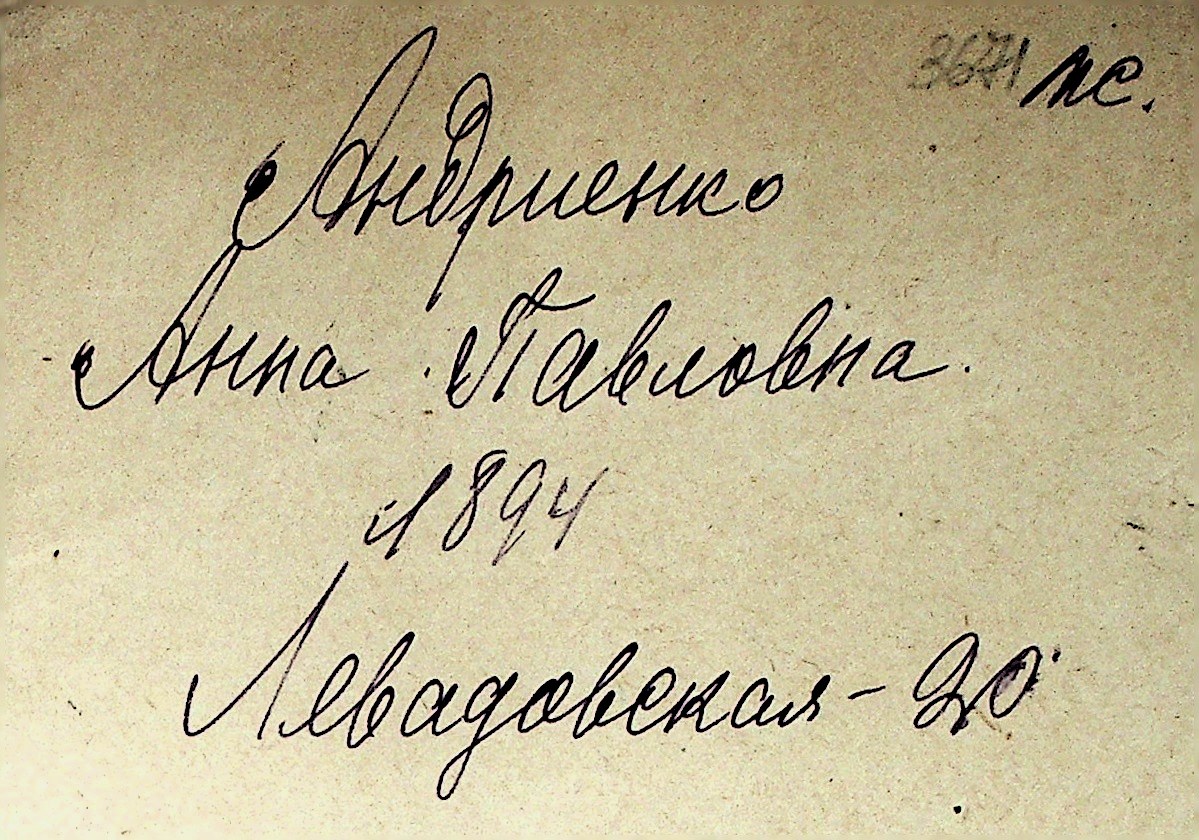 3671 пс.
Андриенко
Анна Павловна.
1894
Левадовская - 20